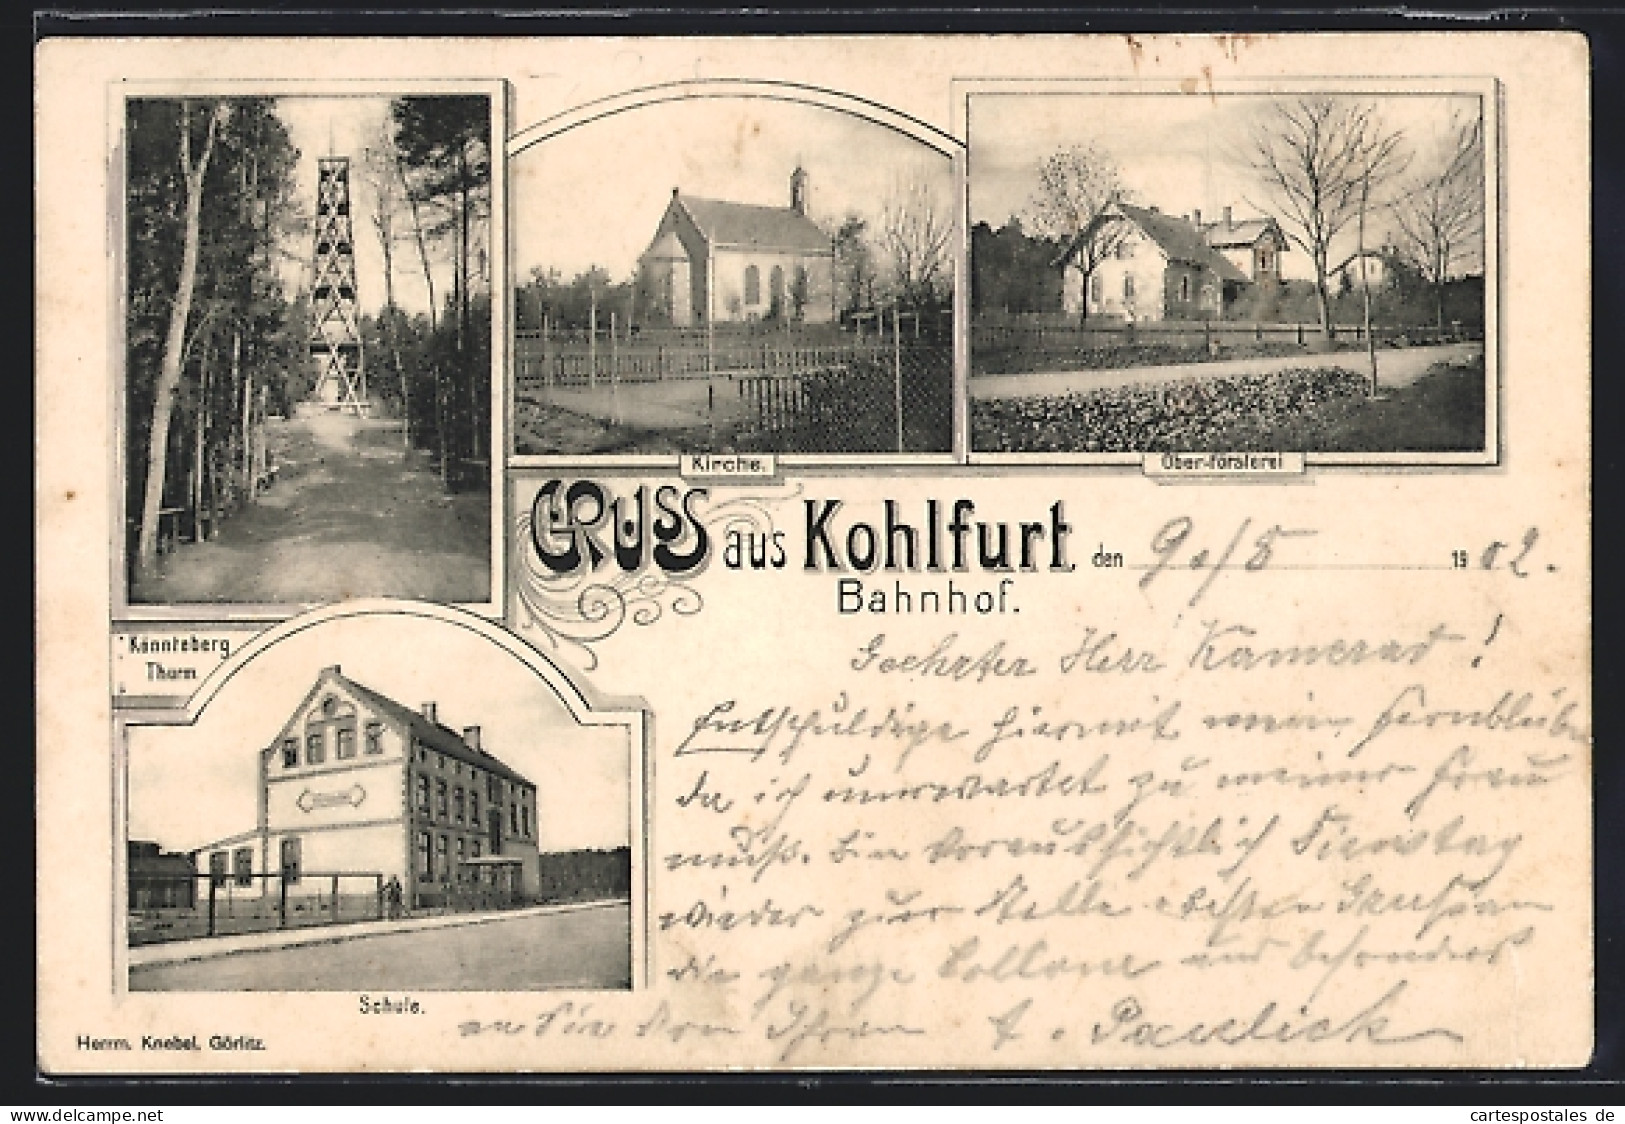 Kirche.
Ober-försterei
Gruss aus Kohlfurt, den 9./5 1902.
Bahnhof.
Könnteberg
Thurm
Geehrter Herr Kamerad!
Entschuldige hiermit mein Fernbleiben
da ich unerwartet zu meiner Frau
muß. Bin voraussichtlich Dienstag
wieder zur Stelle. Besten Gruß an
die ganze Collone und besonders
an Sie von Ihrem
Schule.
Herrm. Knebel, Görlitz.
cartespostales de
www.delcampe.net